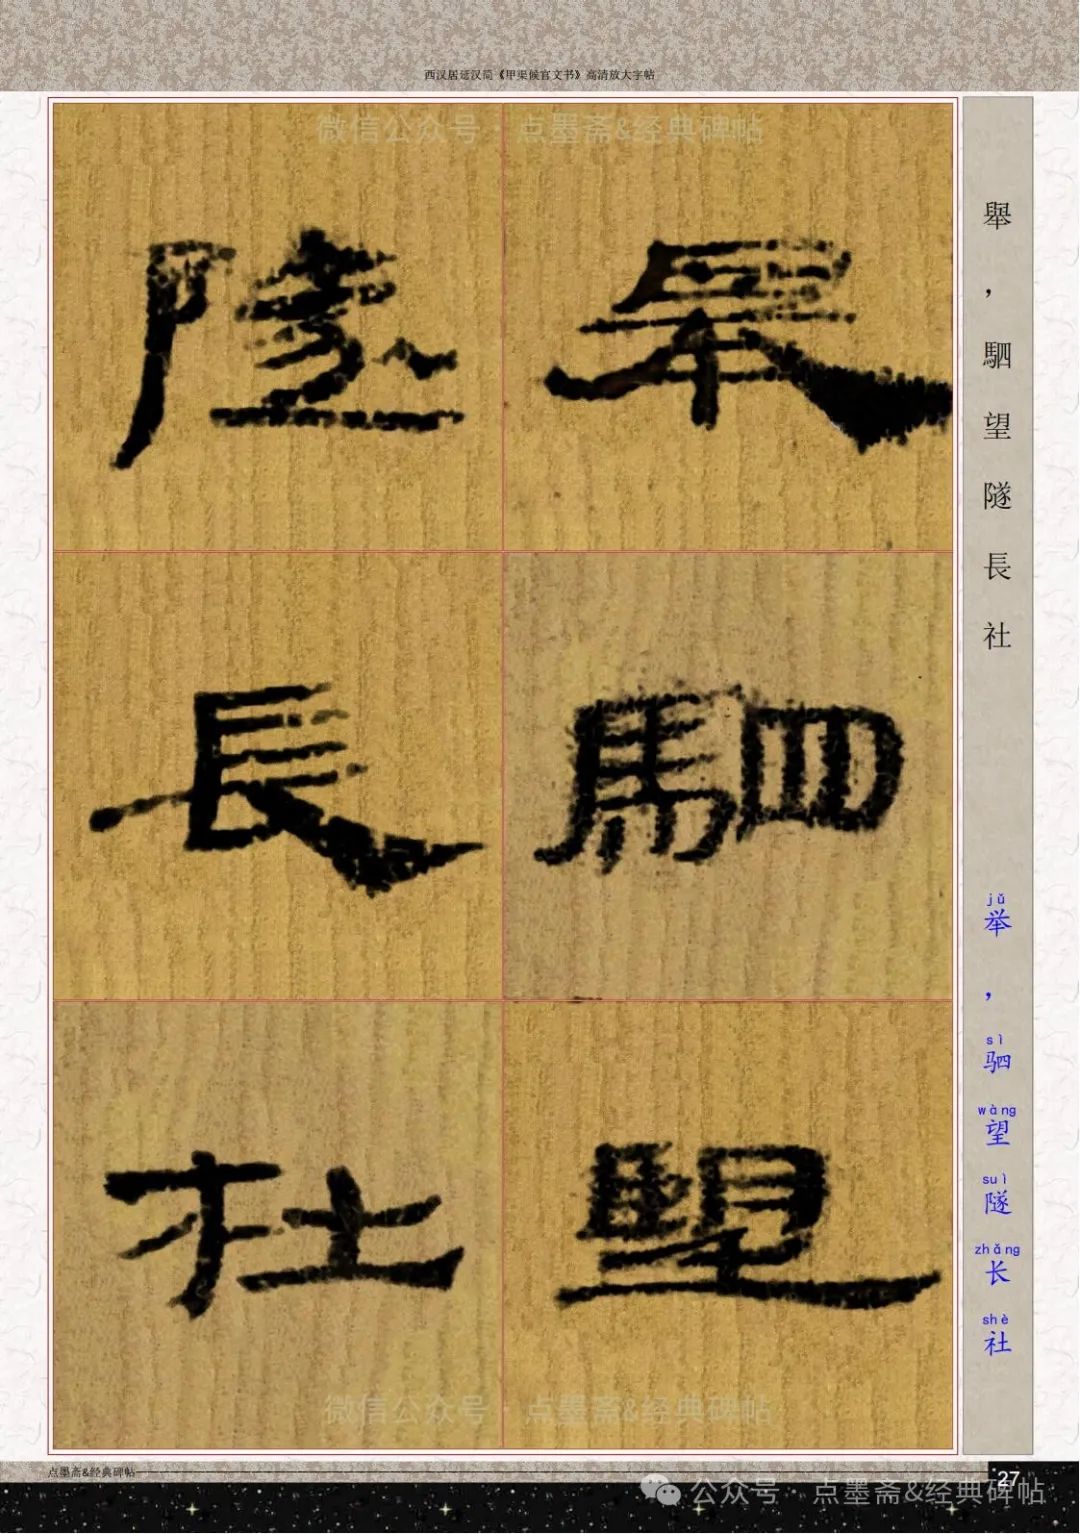 西汉居延汉简《甲渠候官文书》高清放大字帖
微信公众号·点墨斋&经典碑帖
舉
駟
望
隧
長
社
舉，駟望隧長社
jǔ
举，
sì
驷
wàng
望
suì
隧
zhǎng
长
shè
社
微信公众号·点墨斋&经典碑帖
点墨斋&经典碑帖
27
公众号·点墨斋&经典碑帖